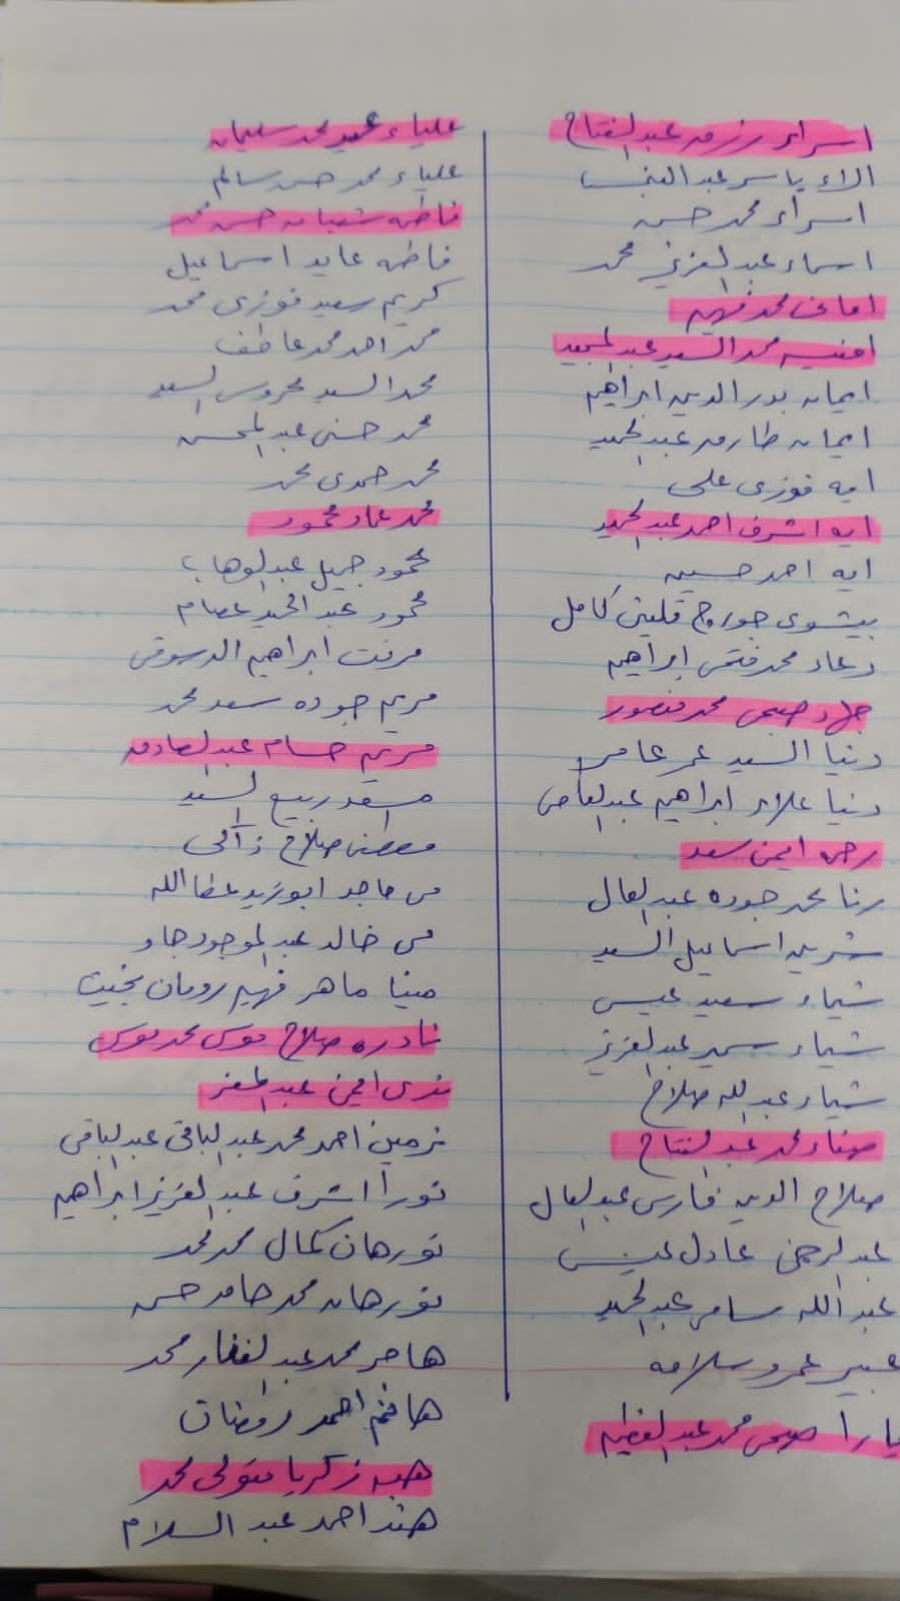 اسراء رزق عبد الفتاح
الاء ياسر عبد النبى
اسراء محمد حسن
اسماء عبد العزيز محمد
امانى محمد فهيم
امنيه محمد السيد عبد المجيد
ايمان بدر الدين ابراهيم
ايمان طارق عبد الحميد
ايه فوزى على
ايه اشرف احمد عبد الحميد
ايه احمد حسين
بيشوى جورج قلينى كامل
دعاء محمد فتحى ابراهيم
صبحى محمد منصور
دنيا السيد عمر عامر
دنيا علاء ابراهيم عبد العاطى
رحمه ايمن سعد
رنا محمد جوده عبد العال
شرين اسماعيل السيد
شيماء سعيد عيسى
شيماء سمير عبد العزيز
شيماء عبد الله صلاح
صفاء محمد عبد الفتاح
صلاح الدين فارس عبد العال
عبد الرحمن عادل
عبد الله سامى عبد الحميد
عبير عمرو سلامه
يارا صبحى محمد عبد العظيم
علياء محمد سليمان
علياء محمد حسن سالم
فاطمه شعبان حسن محمد
فاطمه عايد اسماعيل
كريم سعيد فوزى محمد
محمد احمد محمد عاطف
محمد السيد محروس السيد
محمد حسنى عبد المحسن
محمد حمدى محمد
محمد عماد محمود
محمود جميل عبد الوهاب
محمود عبد الحميد عصام
مرفت ابراهيم الدسوقى
مريم جوده سعد محمد
مريم حسام عبد الصادق
ربيع السيد
مصطفى صلاح زكى
مى ماجد ابوزيد عطا الله
مى خالد عبد الموجود جاد
مينا ماهر فهيم رومان بخيت
نادره صلاح موسى محمد موسى
ندى ايمن عبد المعز
نرمين احمد محمد عبد الباقى عبد الباقى
نورا اشرف عبد العزيز ابراهيم
نورهان كمال محمد محمد
نورهان محمد حامد حسن
هاجر محمد عبد الغفار محمد
هانم احمد رمضان
هبه زكريا متولى محمد
هند احمد عبد السلام